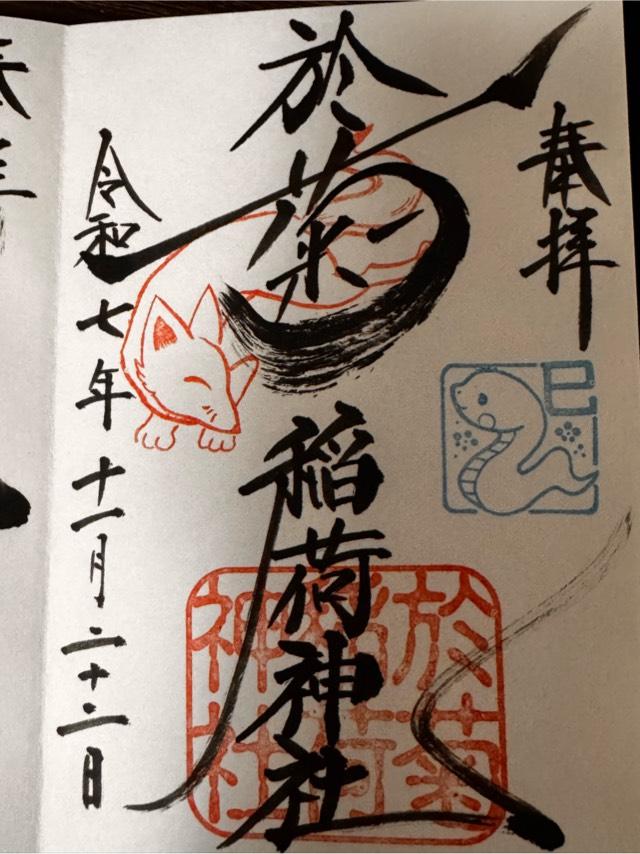 奉拝
巳
於菊稲荷神社
於菊
稲荷
神社
令和七年十一月二十二日